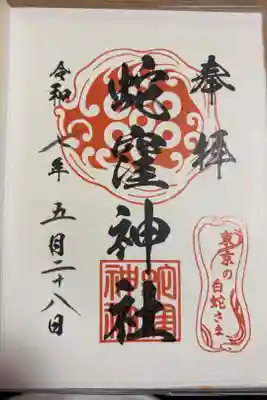 奉拝
蛇窪神社
令和八年五月二十八日
東京の
白蛇さま
蛇窪神社